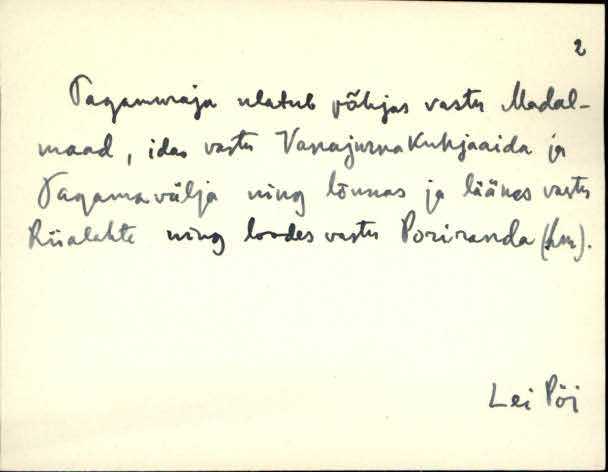 2
Tagamuraja ulatub põhjas vastu Madal-
maad, idas vastu Vanajurna Kuhjaaida ja
Tagamavälja ning lõunas ja läänes vastu
Riialahte ning loodes vastu Poriranda (hm).
Lei Pöi